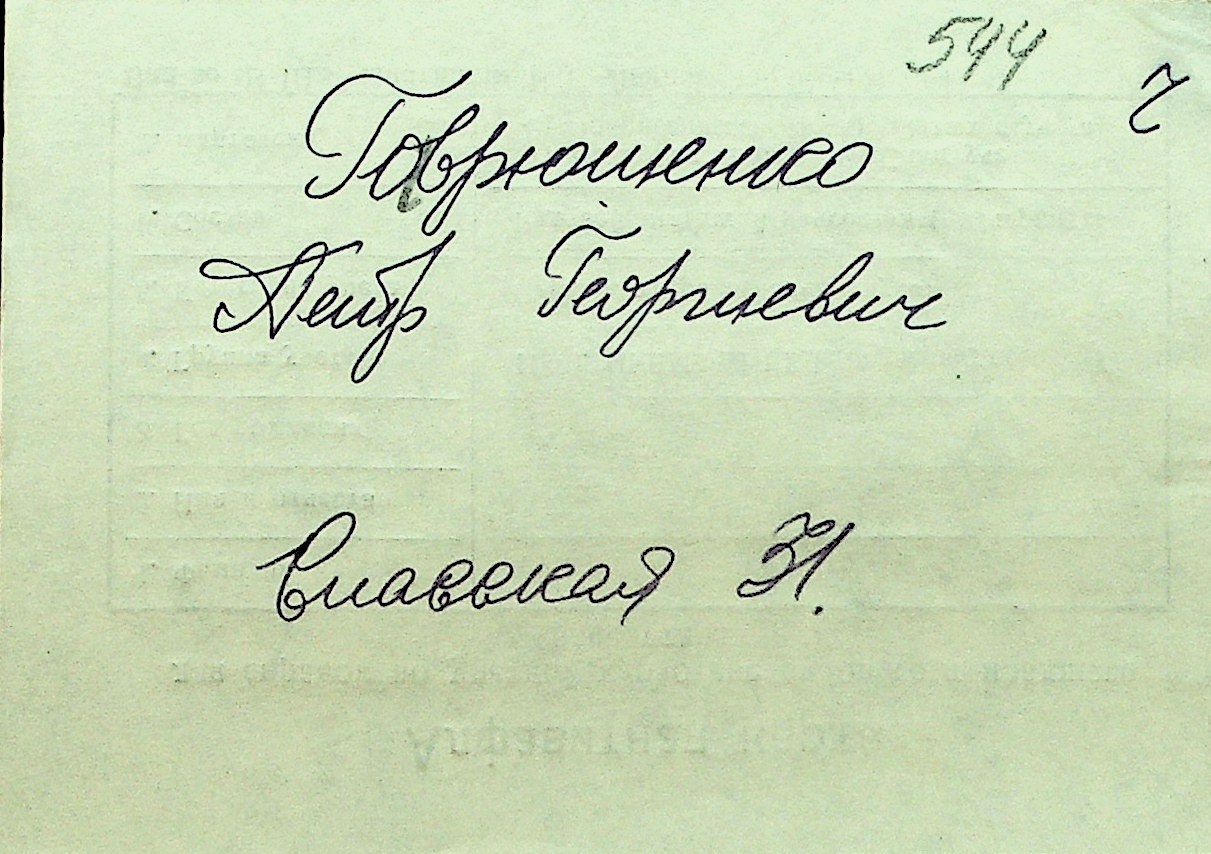 544
ч
Гаврюшенко
Петр Георгиевич
Спасская 31.